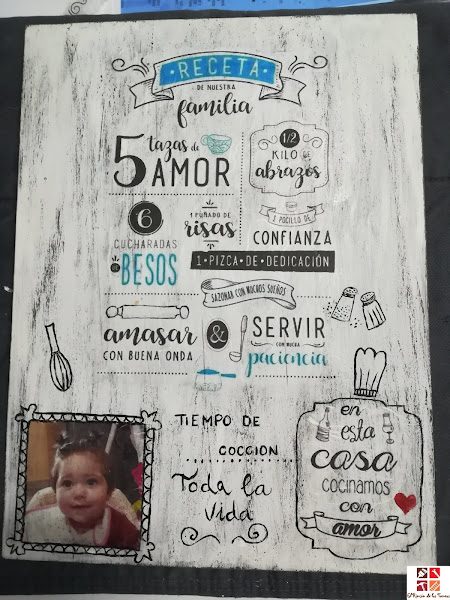 RECETA
DE NUESTRA
familia
5 tazas de
AMOR
1/2
KILO DE
abrazos
6
CUCHARADAS
DE BESOS
1 PUÑADO DE
risas
1 POCILLO DE
CONFIANZA
1 PIZCA DE DEDICACIÓN
SAZONAR CON MUCHOS SUEÑOS
amasar
CON BUENA ONDA
&
SERVIR
CON MUCHA
paciencia
TIEMPO DE
COCCION
Toda la
Vida
en
esta
casa
COCINAMOS
con
amor